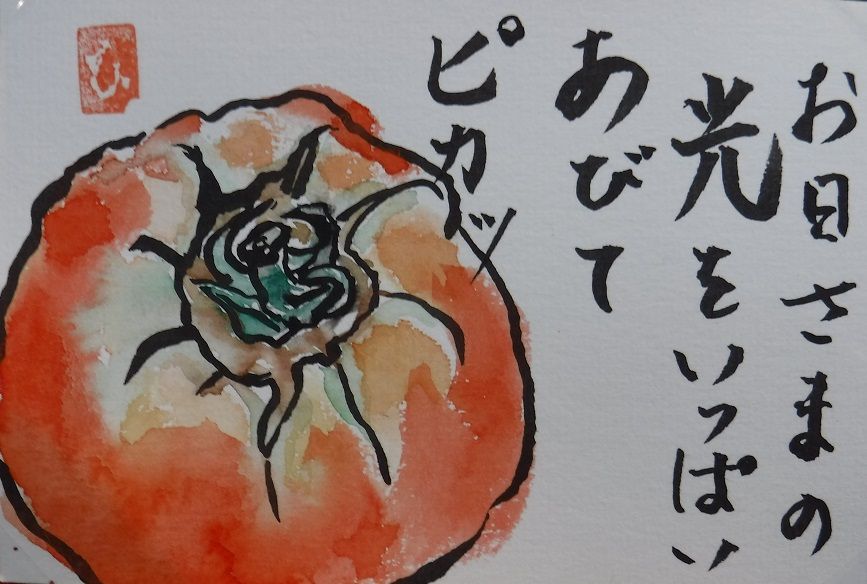 お日さまの
光をいっぱい
あびて
ピカッ
ひ